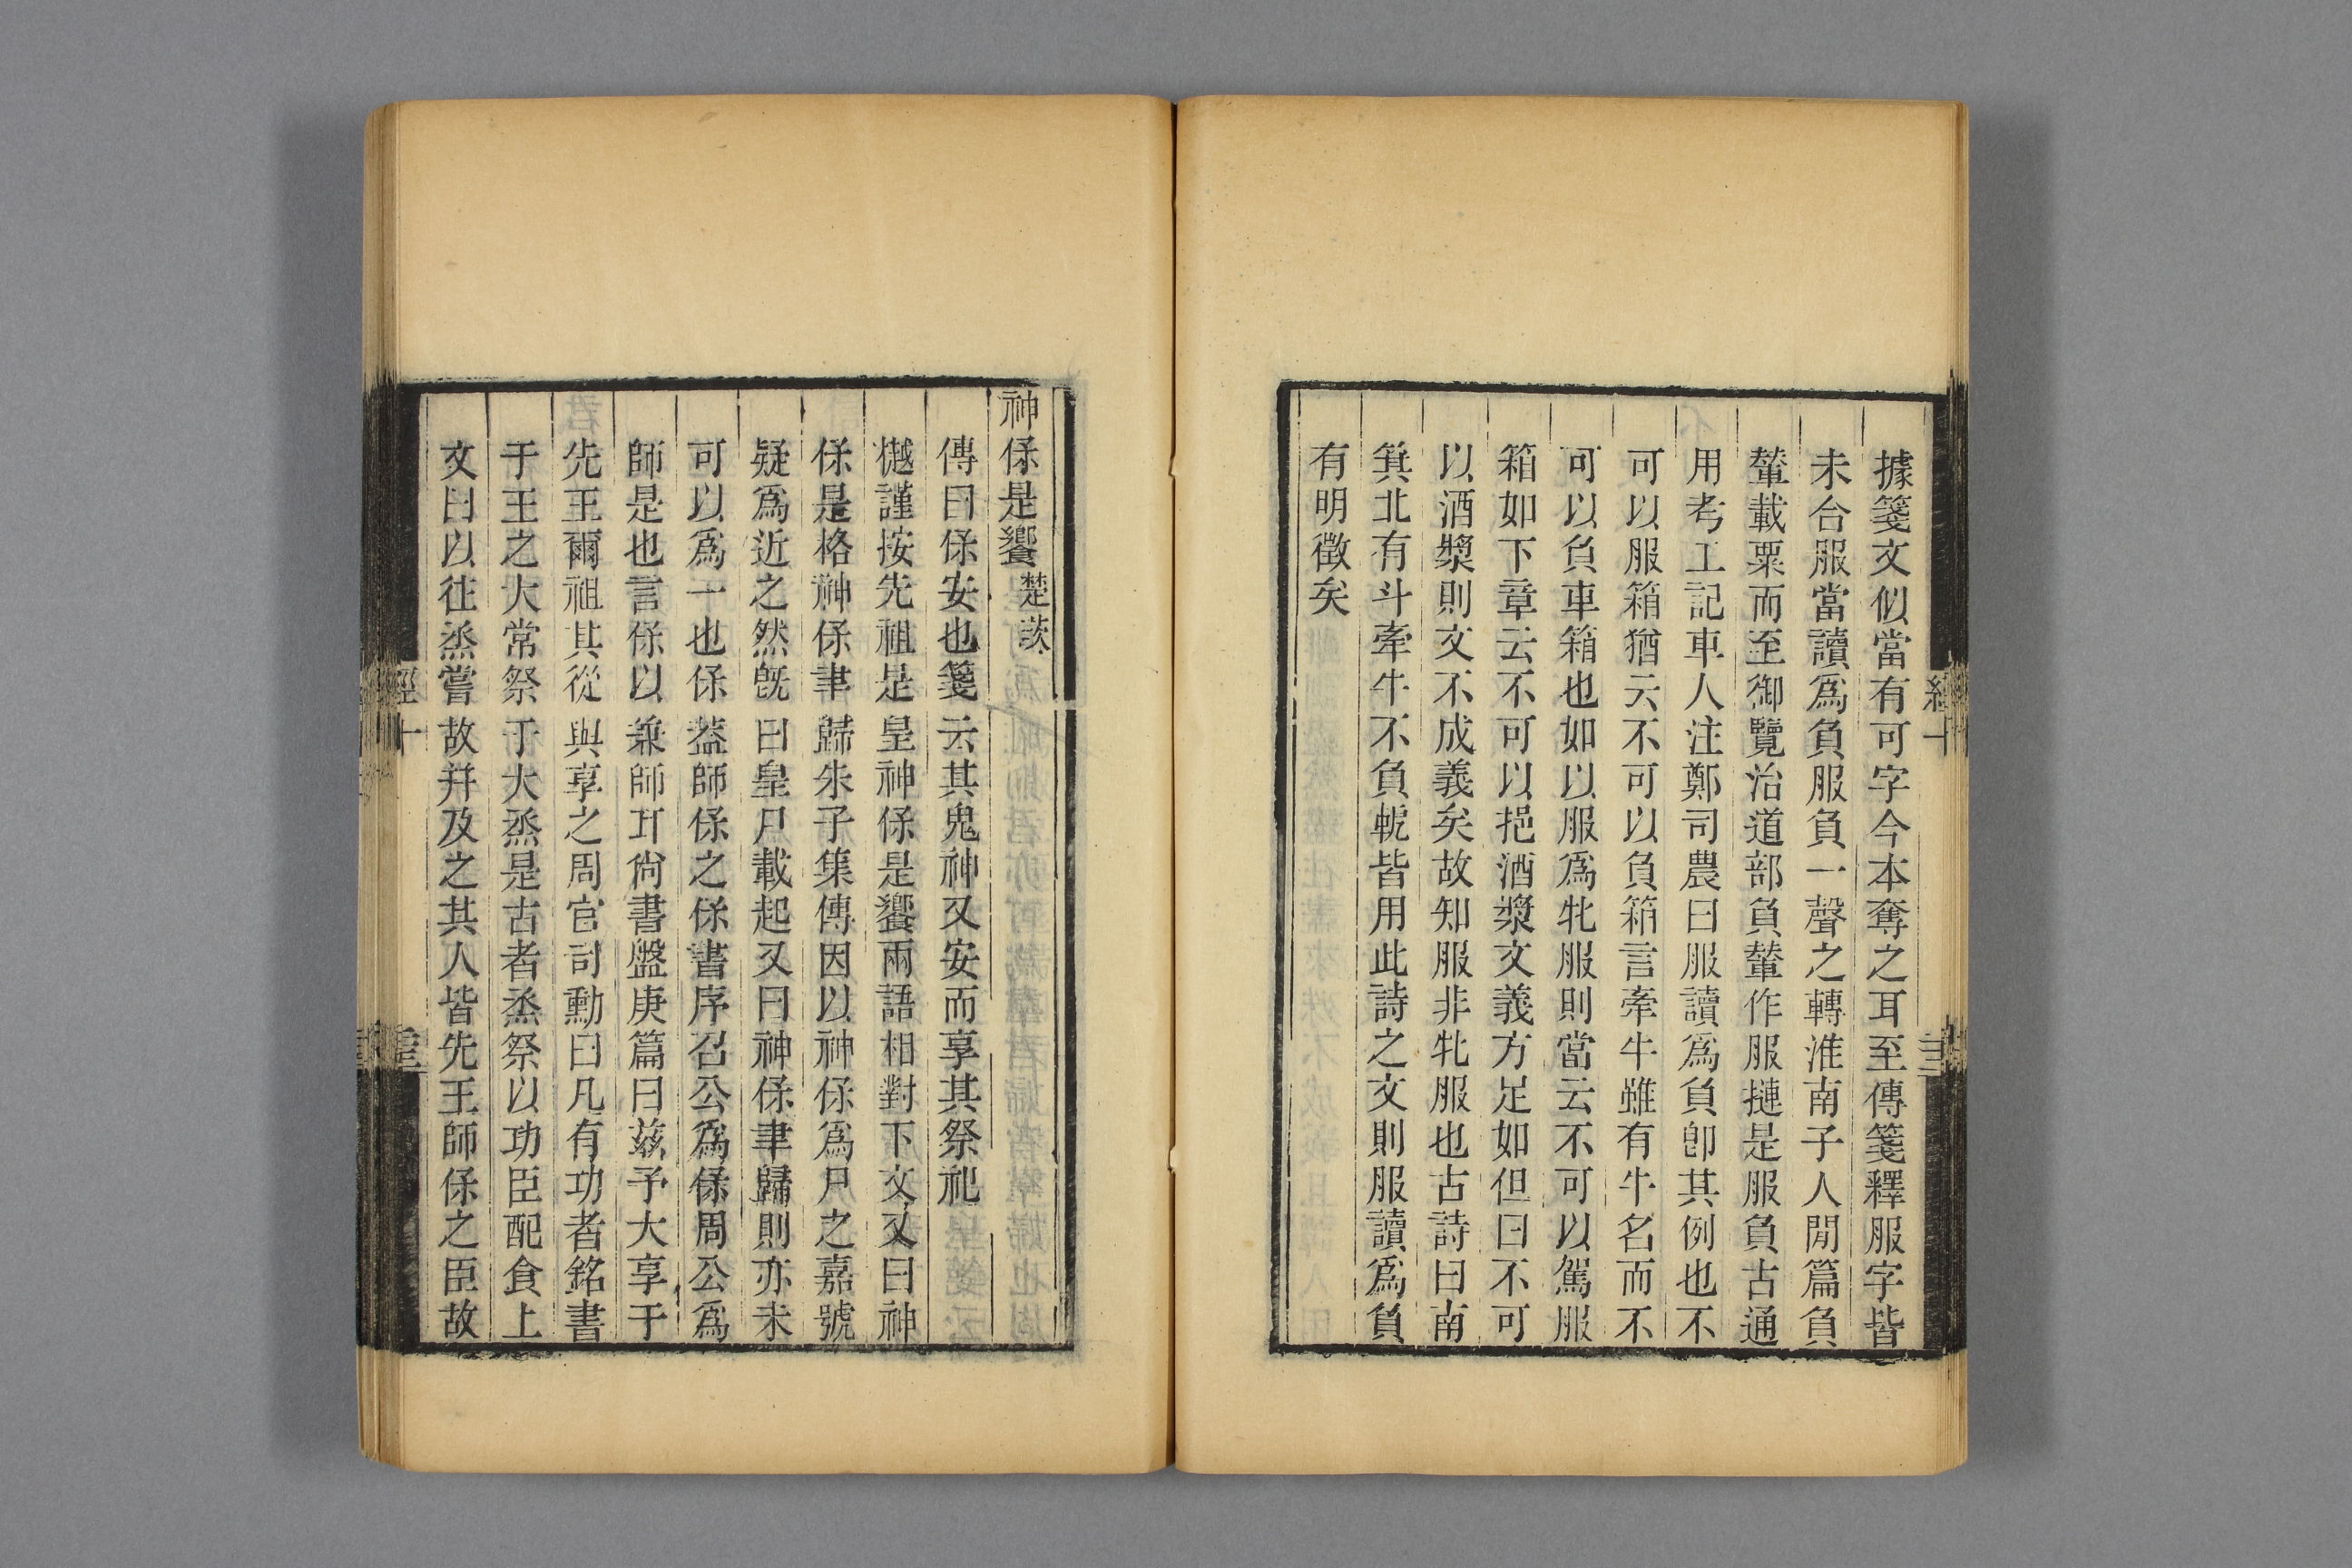 據箋文似當有可字今本奪之耳至傳箋釋服字皆
未合服當讀爲負服負一聲之轉淮南子人閒篇負
輦載粟而至御覽治道部負輦作服摙是服負古通
用考工記車人注鄭司農曰服讀爲負卽其例也不
可以服箱猶云不可以負箱言牽牛雖有牛名而不
可以負車箱也如以服爲牝服則當云不可以駕服
箱如下章云不可以挹酒漿文義方足如但曰不可
以酒漿則文不成義矣故知服非牝服也古詩曰南
箕北有斗牽牛不負軛皆用此詩之文則服讀爲負
有明徵矣
神保是饗楚茨
傳曰保安也箋云其鬼神又安而享其祭祀
樾謹按先祖是皇神保是饗兩語相對下文又曰神
保是格神保聿歸朱子集傳因以神保爲尸之嘉號
疑爲近之然旣曰皇尸載起又曰神保聿歸則亦未
可以爲一也保蓋師保之保書序召公爲保周公爲
師是也言保以兼師耳尙書盤庚篇曰茲予大享于
先王爾祖其從與享之周官司勳曰凡有功者銘書
于王之大常祭于大烝是古者烝祭以功臣配食上
文曰以往烝嘗故幷及之其人皆先王師保之臣故